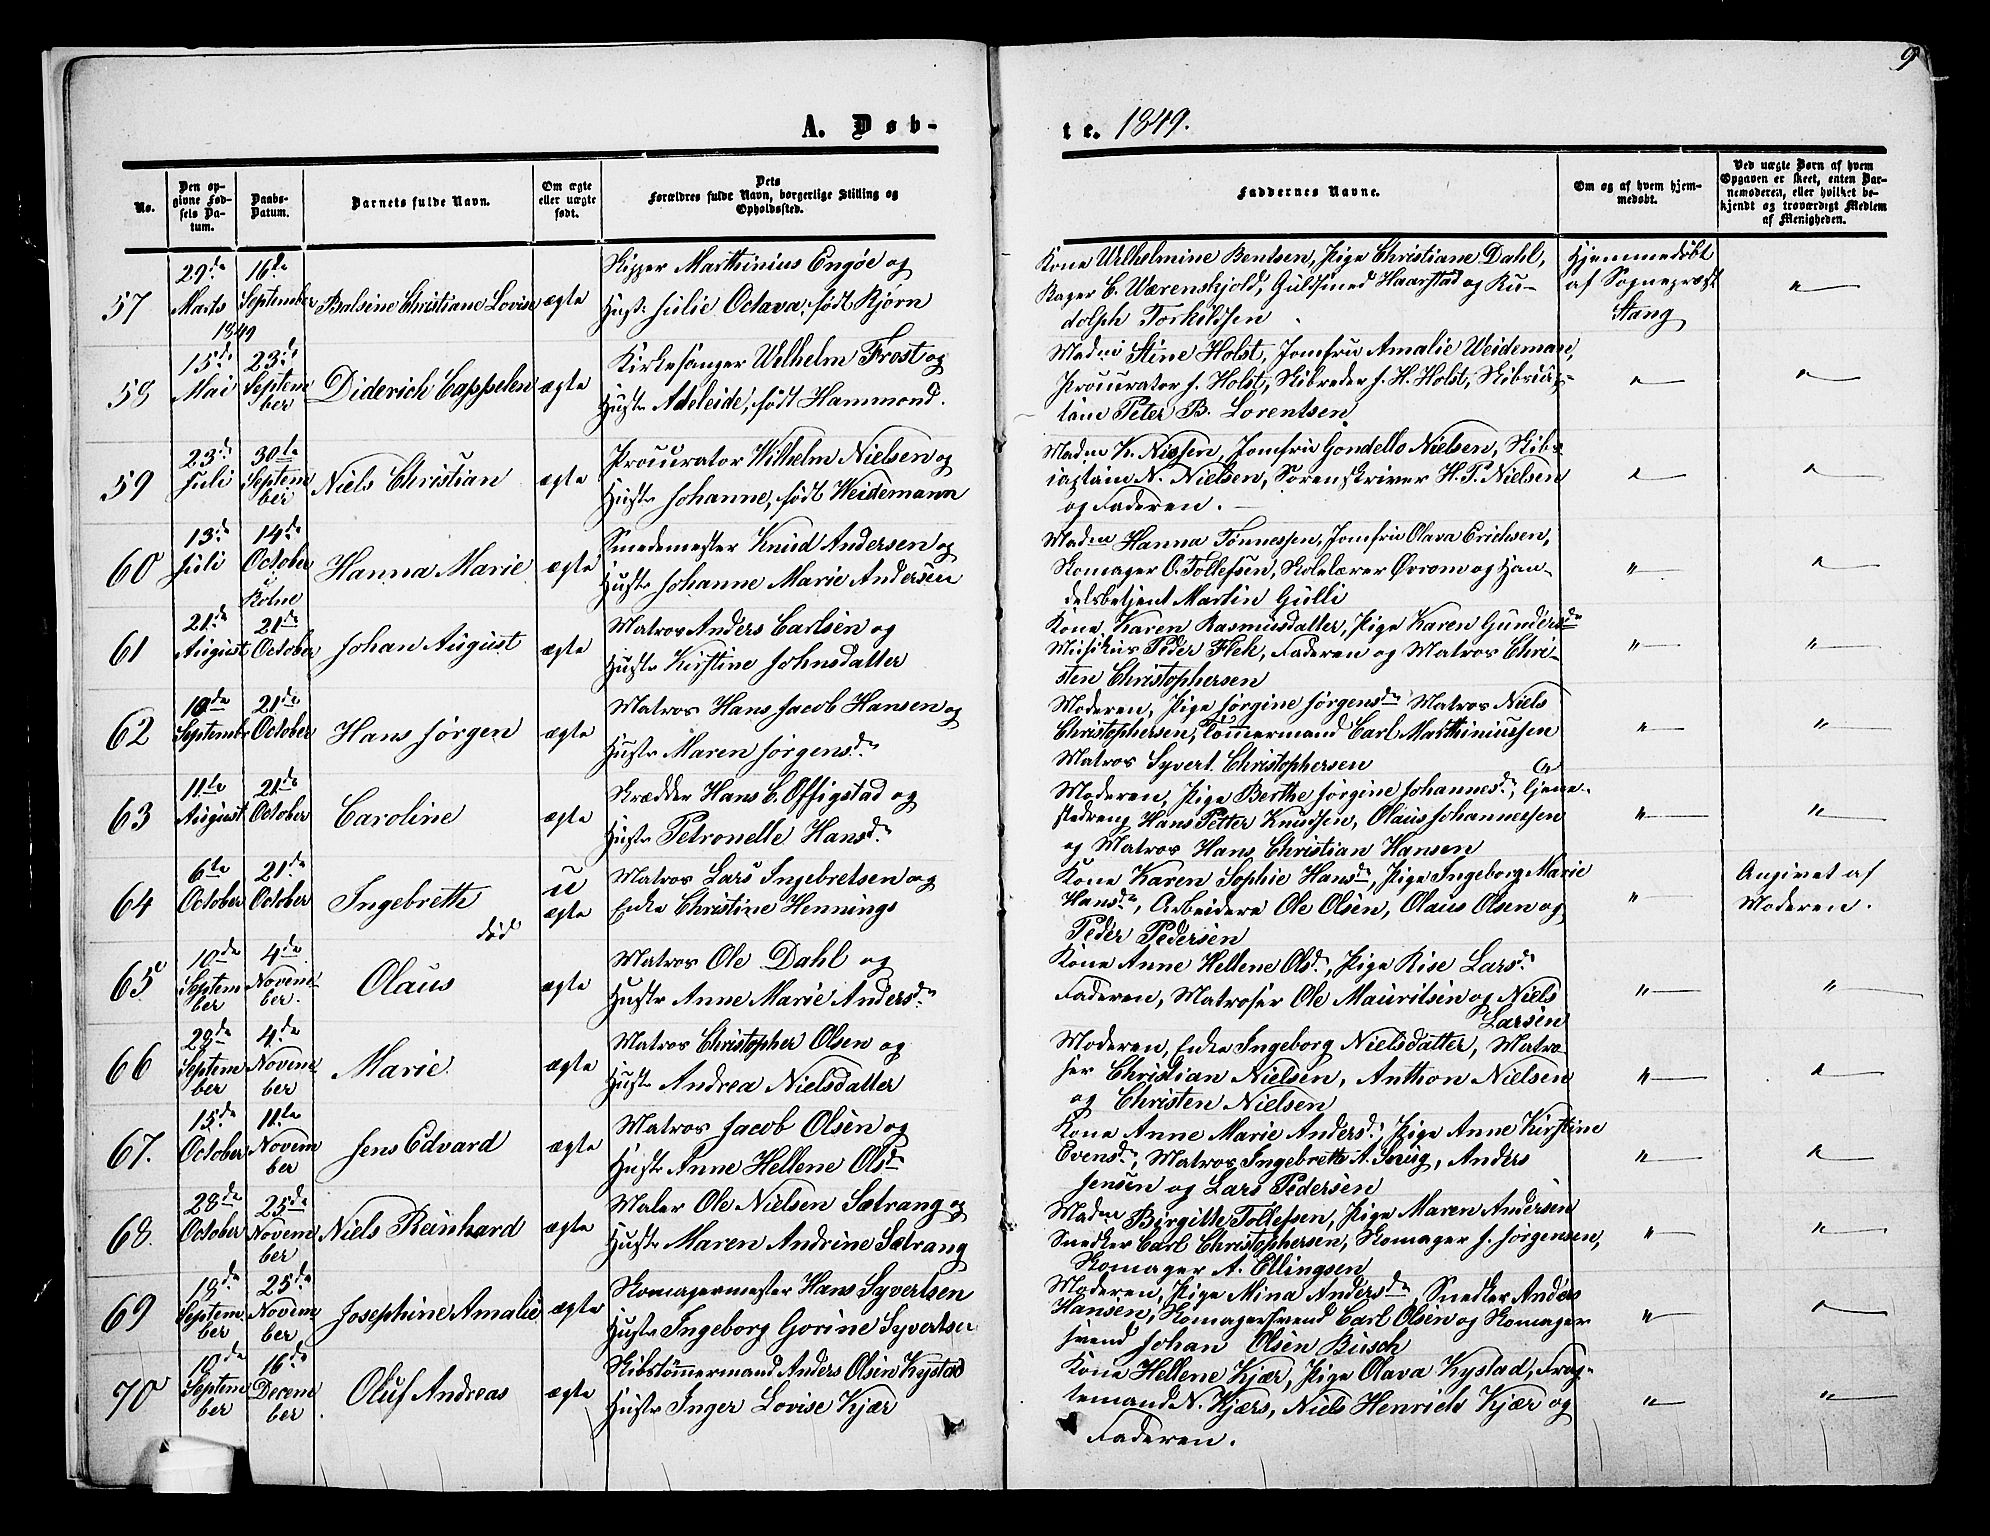 9
A. Døb-
te. 1849.
No.
Den op-
givne Fød-
sels Da-
tum.
Daabs-
Datum.
Barnets fulde Navn.
Om ægte
eller uægte
født.
Dets
Forældres fulde Navn, borgerlige Stilling og
Opholdssted.
Faddernes Navne.
Om og af hvem hjem-
medøbt.
Ved uægte Børn af hvem
Opgaven er skeet, enten Bar-
nemoderen, eller hvilket be-
kjendt og troværdigt Medlem
af Menigheden.
57
29de
Marts
1849
16de
September
Balsine Christiane Lovise
ægte
Skipper Marthinius Engøe og
Hustr: Julie Octava, født Bjørn
Kone Wilhelmine Bentsen, Pige Christiane Dahl,
Bager C. Wærenskjold, Guldsmed Haarstad og Ru-
dolph Torkildsen
Hjemmedøbt
af Sogneprest
Stang
"
58
15de
Mai
23de
Septem
ber
Diderich Cappelen
ægte
Kirkesanger Wilhelm Frost og
Hustr Adeleide, født Hammond.
Madm Stine Holst, Jomfru Amalie Weideman,
Procurator J. Holst, Skibreder J. H. Holst, Skibscap-
tain Peter B. Lorentsen.
"
"
59
23de
Juli
30te
Septem
ber
Niels Christian
ægte
Procurator Wilhelm Nielsen og
Hustr Johanne, født Weidemann
Madm K. Nissen, Jomfru Gondello Nielsen, Skibs-
captain N. Nielsen, Sorenskriver H. P. Nielsen
og Faderen.
"
"
60
13de
Juli
14de
October
i
Botne
Hanna Marie
ægte
Smedemester Knud Andersen og
Hustr Johanne Marie Andersen
Madm Hanna Tønnessen, Jomfru Olava Erichsen,
Skomager O. Tollefsen, Skolelærer Øvrom og Han-
delsbetjent Martin Gulli
"
"
61
21de
August
21de
October
Johan August
ægte
Matros Anders Carlsen og
Hustr Kirstine Johnsdatter
Kone Karen Rasmusdatter, Pige Karen Gundersdr
Musikus Peder Flek, Faderen og Matros Chri-
sten Christophersen
"
"
62
18de
Septembr
21de
October
Hans Jørgen
ægte
Matros Hans Jacob Hansen og
Hustr Maren Jørgensdr
Moderen, Pige Jørgine Jørgensdr Matros Niels
Christophersen, Tømmermand Carl Marthiniussen
Matros Syvert Christophersen
"
"
63
11te
August
21de
October
Caroline
ægte
Skrædder Hans C. Offigstad og
Hustr Petronelle Hansdr
Moderen, Pige Berthe Jørgine Johannesdr, Tjene-
stedreng Hans Petter Knudsen, Olaus Johannessen
og Matros Hans Christian Hansen
"
"
64
6te
October
21de
October
Ingebreth
død
u
ægte
Matros Lars Ingebretsen og
Enke Christine Hennings
Kone Karen Sophie Hansdr, Pige Ingeborg Marie
Hansdr, Arbeidere Ole Olsen, Olaus Olsen og
Peder Pedersen
"
Angivet af
Moderen.
65
10de
Septem
ber
4de
Novem
ber.
Olaus
ægte
Matros Ole Dahl og
Hustr Anne Marie Andersdr
Kone Anne Hellene Olsdr, Pige Rise Larsdr
Faderen, Matroser Ole Mauritsen og Niels
Larsen
"
"
66
28de
Septem
ber
4de
Novem
ber
Marie
ægte
Matros Christopher Olsen og
Hustr Andrea Nielsdatter
Moderen, Enke Ingeborg Nielsdatter, Matro-
ser Christian Nielsen, Anthon Nielsen
og Christen Nielsen
"
"
67.
15de
October
11te
Novem
ber
Jens Edvard
ægte
Matros Jacob Olsen og
Hustr Anne Hellene Olsdr
Kone Anne Marie Andersdr, Pige Anne Kirstine
Evensdr, Matros Ingebreth A. Snug, Anders
Jensen og Lars Pedersen
"
"
68.
28de
October
25de
Novem
ber
Niels Reinhard
ægte
Maler Ole Nielsen Sætrang og
Hustr Maren Andrine Sætrang
Madm Birgitte Tollefsen, Pige Maren Andersen
Snedker Carl Christophersen, Skomager J. Jørgensen,
Skomager A. Ellingsen
"
"
69
19de
Septem
ber
25de
Novem
ber
Josephine Amalie
ægte
Skomagermester Hans Syvertsen
Hustr Ingeborg Gorine Syvertsen
Moderen, Pige Mina Andersdr, Snedker Anders
Hansen, Skomagersvend Carl Olsen og Skomager
svend Johan Olsen Busch
"
"
70
10de
Septem
ber
16de
Decem
ber
Oluf Andreas
ægte
Skibstømmermand Anders Olsen Kystad
Hustr Inger Lovise Kjær
Kone Hellene Kjær, Pige Olava Kystad, Frag-
temand N. Kjærs, Niels Henrich Kjær og
Faderen.
"
"